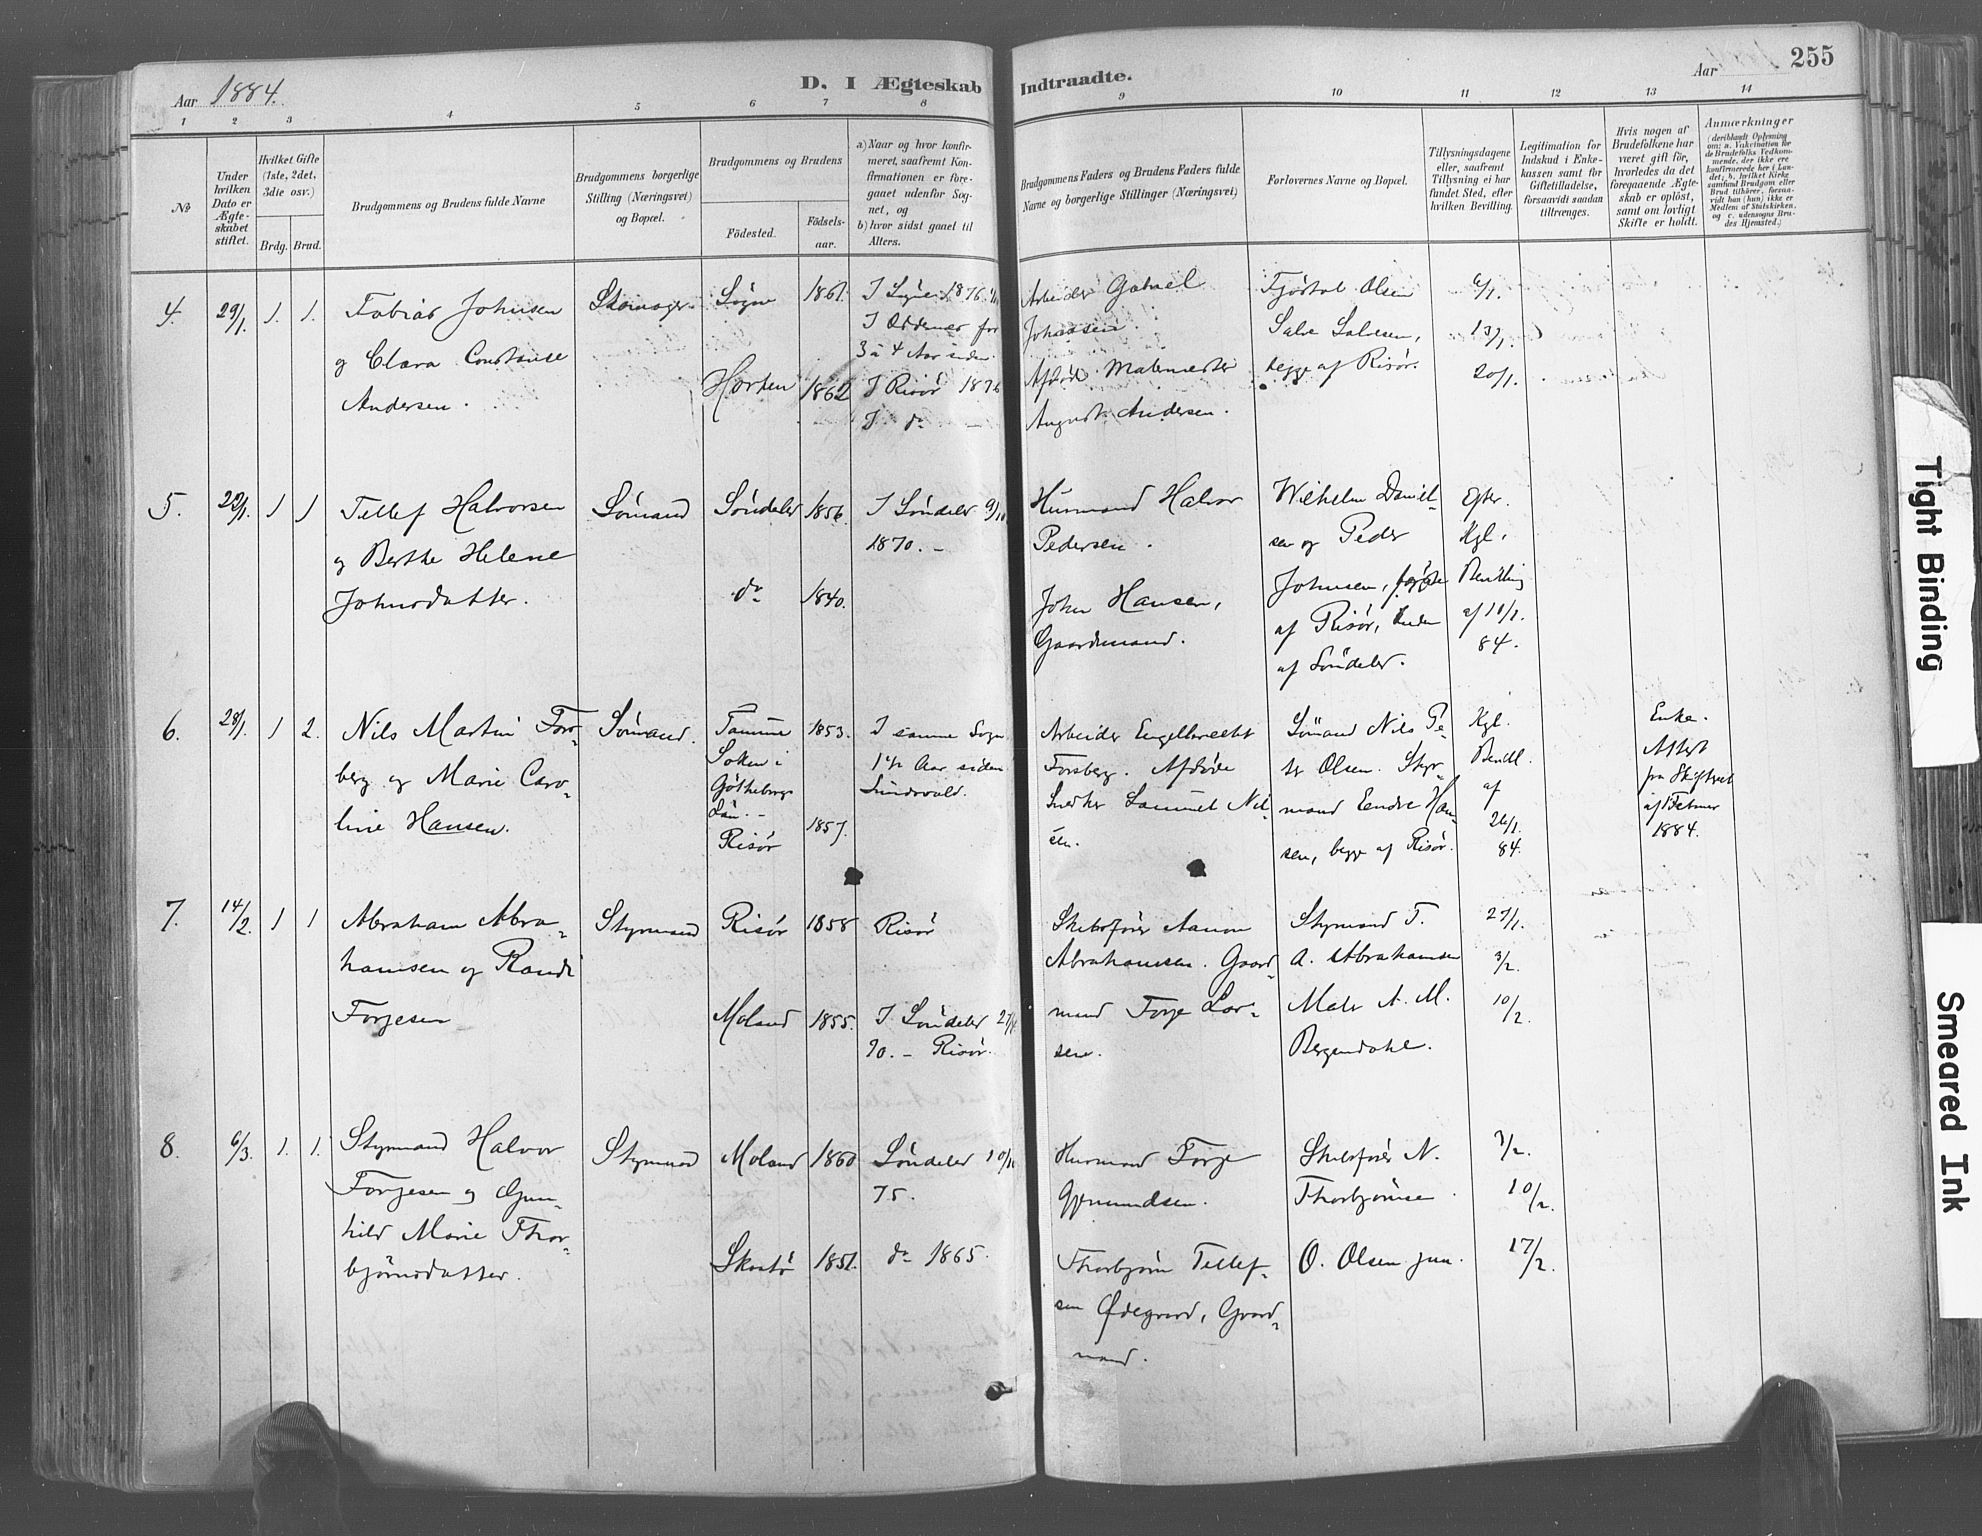 Aar 1884.
D. I Ægteskab
Indtraadte.
Aar
255
1 2 3 4 5 6 7 8 9 10 11 12 13 14
№
Under
hvilken
Dato er
Ægte-
skabet
stiftet.
Hvilket Gifte
(1ste, 2det,
3die osv.)
Brdg. Brud.
Brudgommens og Brudens fulde Navne
Brudgommens borgerlige
Stilling (Næringsvei)
og Bopæl.
Brudgommens og Brudens
Födested.
Födsels-
aar.
a) Naar og hvor konfir-
meret, saafremt Kon-
firmationen er fore-
gaaet udenfor Sog-
net, og
b) hvor sidst gaaet til
Alters.
Brudgommens Faders og Brudens Faders fulde
Navne og borgerlige Stillinger (Næringsvei)
Forlovernes Navne og Bopæl.
Tillysningsdagene
eller, saafremt
Tillysning ei har
fundet Sted, efter
hvilken Bevilling.
Legitimation for
Indskud i Enke-
kassen samt for
Giftetilladelse,
forsaavidt saadan
tiltrænges.
Hvis nogen af
Brudefolkene har
været gift för,
hvorledes da det
foregaaende Ægte-
skab er oplöst,
samt om lovligt
Skifte er holdt.
Anmærkninger
(deriblandt Oplysning
om: a. Vakcination for
de Brudefolks Vedkom-
mende, der ikke ere
konfirmerede her i Lan-
det; b. hvilket Kirke-
samfund Brudgom eller
Brud tilhörer, forsaa-
vidt han (hun) ikke er
Medlem af Statskirken,
og c. udensogns Bru-
des Hjemsted.)
4. 29/1. 1. 1.
Tobias Johnsen
og Clara Constanse
Andersen.
Skomager
Søgne 1861.
Horten 1862
I Søgne 1876
I Oddernes for
3 a 4 Aar siden
I Risør 1876
I do
Arbeider Gabriel
Johnsen.
Afdøde Malermester
August Andersen.
Fjøstol Olsen
Salve Salvesen,
begge af Risør.
6/1.
13/1.
20/1.
5. 1 1
Tellef Halvorsen
og Berthe Helene
Johnsdatter.
Sømand
Søndeler 1856.
do 1840.
I Søndeler 9/10
1870. -
Husmand Halvor
Pedersen.
John Hansen,
Gaardmand.
Wilhelm Daniel-
sen og Peder
Johnsen, første
af Risør, anden
af Søndeler.
Efter
Kgl.
Bevilling
af 10/1.
84.
6. 28/1. 1 2.
Nils Martin Fors-
berg og Marie Caro-
line Hansen.
Sømand.
Tanum
Soken i
Gøtheborgs
Län. -
Risør
1853.
1857.
I samme Sogn
1 1/2 Aar siden
Sundsvald.
Arbeider Engelbrecht
Forsberg. Afdøde
Snedker Samuel Nil-
sen.
Sömand Nils Pe-
ter Olsen. Styr-
mand Eendre Han-
sen, begge af Risør.
Kgl.
Bevill.
af
26/1.
84.
Enke.
Attest
fra Skifteret
af Febuar
1884.
7. 14/2. 1 1
Abraham Abra-
hamsen og Randi
Torjesen
Styrmand
Risør 1858
Moland 1855.
Risør
I Søndeler
70. - Risør.
Skibsfører Aanon
Abrahamsen. Gaard-
mand Torje Lar-
sen.
Styrmand T.
A. Abrahamsen
Maler A. M.
Bergendahl.
27/1.
3/2.
10/2.
8. 6/3. 1. 1.
Styrmand Halvor
Torjesen og Gun-
hild Marie Thor-
bjørnsdatter.
Styrmand
Moland 1860
Skaatø 1851.
Søndeler
75.
do 1865.
Husmand Torje
Gjermundsen.
Thorbjørn Tellef-
sen Ødegaard, Gaard-
mand.
Skibsfører N.
Thorbjørnsen.
O. Olsen jun.
3/2.
10/2.
17/2.
Tight Binding
Smeared Ink